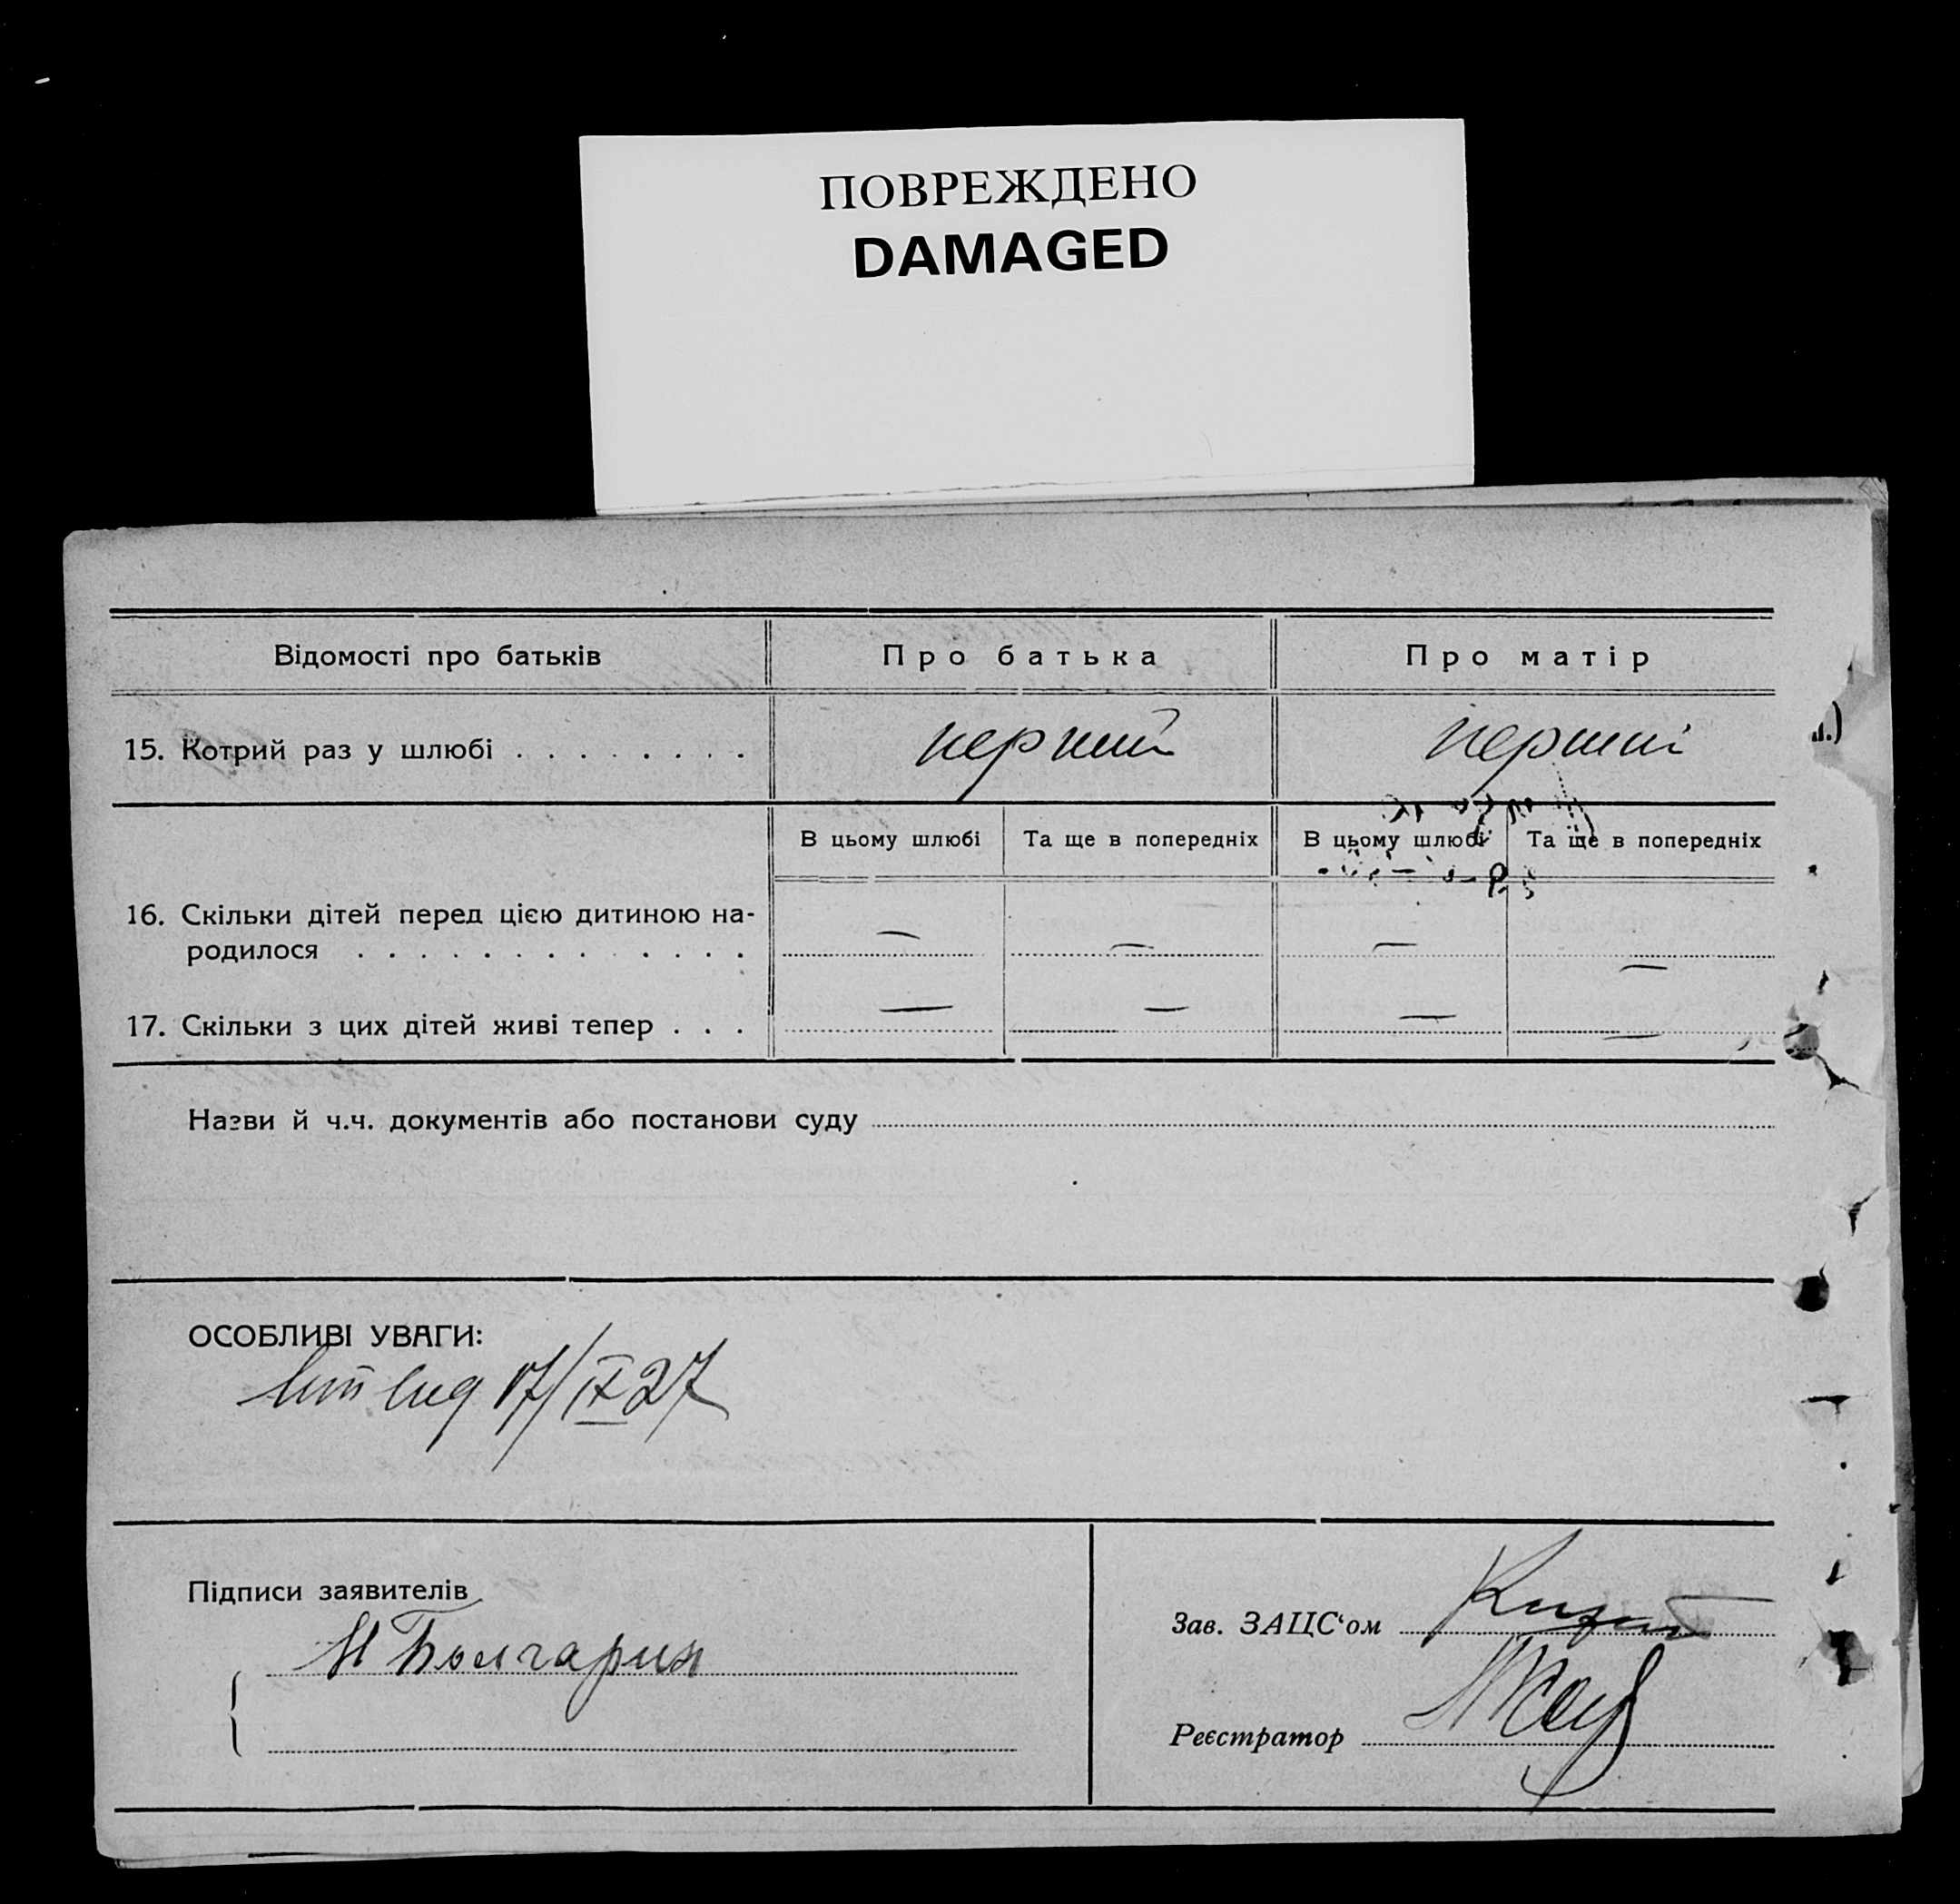 ПОВРЕЖДЕНО
DAMAGED
Відомості про батьків
Про батька
Про матір
15. Котрий раз у шлюбі . . . . . . . .
перший
перший
В цьому шлюбі
Та ще в попередніх
В цьому шлюбі
Та ще в попередніх
16. Скільки дітей перед цією дитиною на-
родилося . . . . . . . . . . . . .
— — — —
17. Скільки з цих дітей живі тепер . . .
— — — —
Назви й ч.ч. документів або постанови суду
ОСОБЛИВІ УВАГИ:
17/IX 27
Підписи заявителів
Болгарин
Зав. ЗАЦС‘ом
Реєстратор